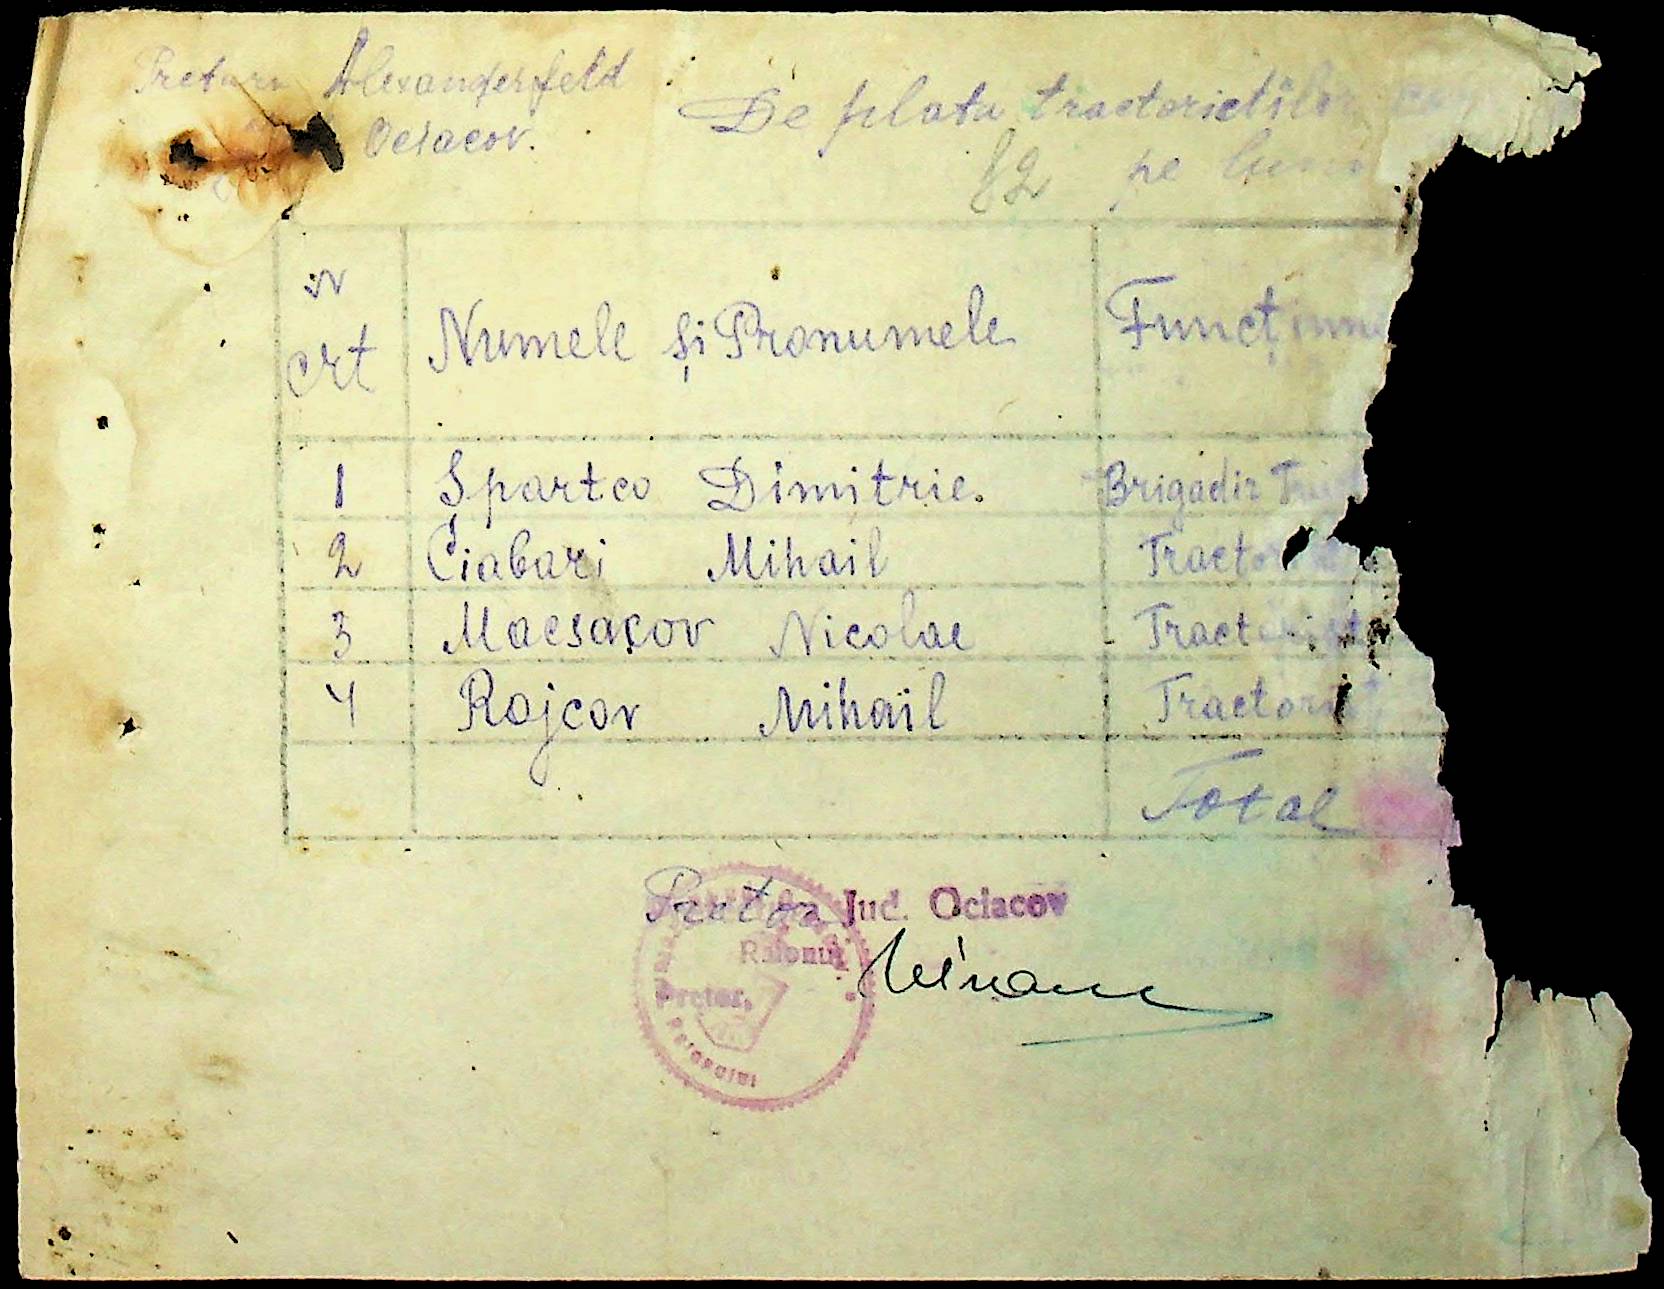 Pretura Alexanderfeld
Ociacov.
De plata tractoriștilor
pe luna
12
Nr
crt
Numele și Pronumele
Funcțiune
1 Șpartco Dimitrie. Brigadir
2 Ciabari Mihail Tractorist
3 Macsacov Nicolae Tractorist
4 Rojcov Mihail Tractorist
Total
Pretor Jud. Ociacov
Raionul
Pretor.